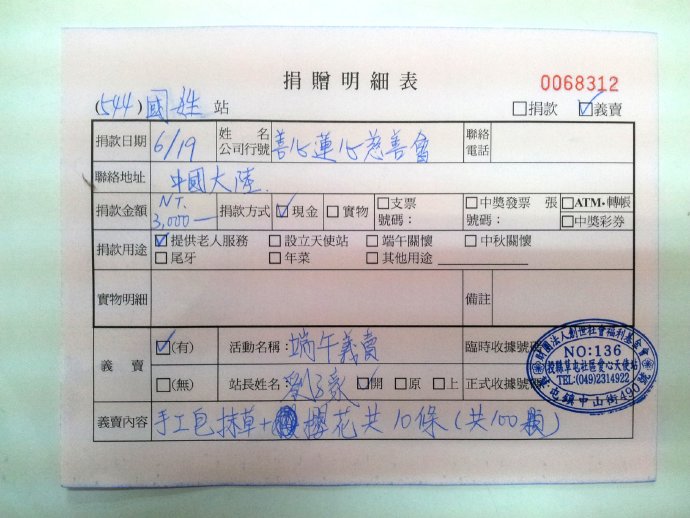 捐贈明細表
0068312
(544) 國姓 站 □捐款 ☑義賣
捐款日期 6/19 姓名 公司行號 善心蓮心慈善會 聯絡電話
聯絡地址 中國大陸
捐款金額 NT. 3,000— 捐款方式 ☑現金 □實物 □支票 號碼: □中獎發票 張 號碼: □ATM·轉帳 □中獎彩券
捐款用途 ☑提供老人服務 □設立天使站 □端午關懷 □中秋關懷
□尾牙 □年菜 □其他用途
實物明細 備註
義賣 ☑(有) 活動名稱: 端午義賣 臨時收據號碼
□(無) 站長姓名: ☑開 □原 □上 正式收據號碼
義賣內容 手工包抹草+ 櫻花共10條(共100顆)
財團法人創世社會福利基金會
NO:136
投縣草屯社區愛心天使站
TEL:(049)2314922
屯鎮中山街400號